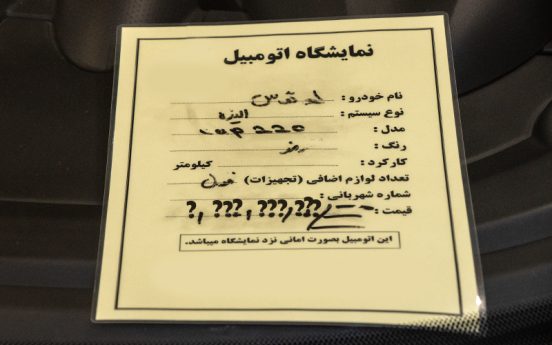 نمایشگاه اتومبیل
نام خودرو :
نوع سیستم : الیزه
مدل :
رنگ :
کارکرد : کیلومتر
تعداد لوازم اضافی (تجهیزات)
شماره شهربانی :
قیمت : ?, ???, ???, ???
این اتومبیل بصورت امانی نزد نمایشگاه میباشد.